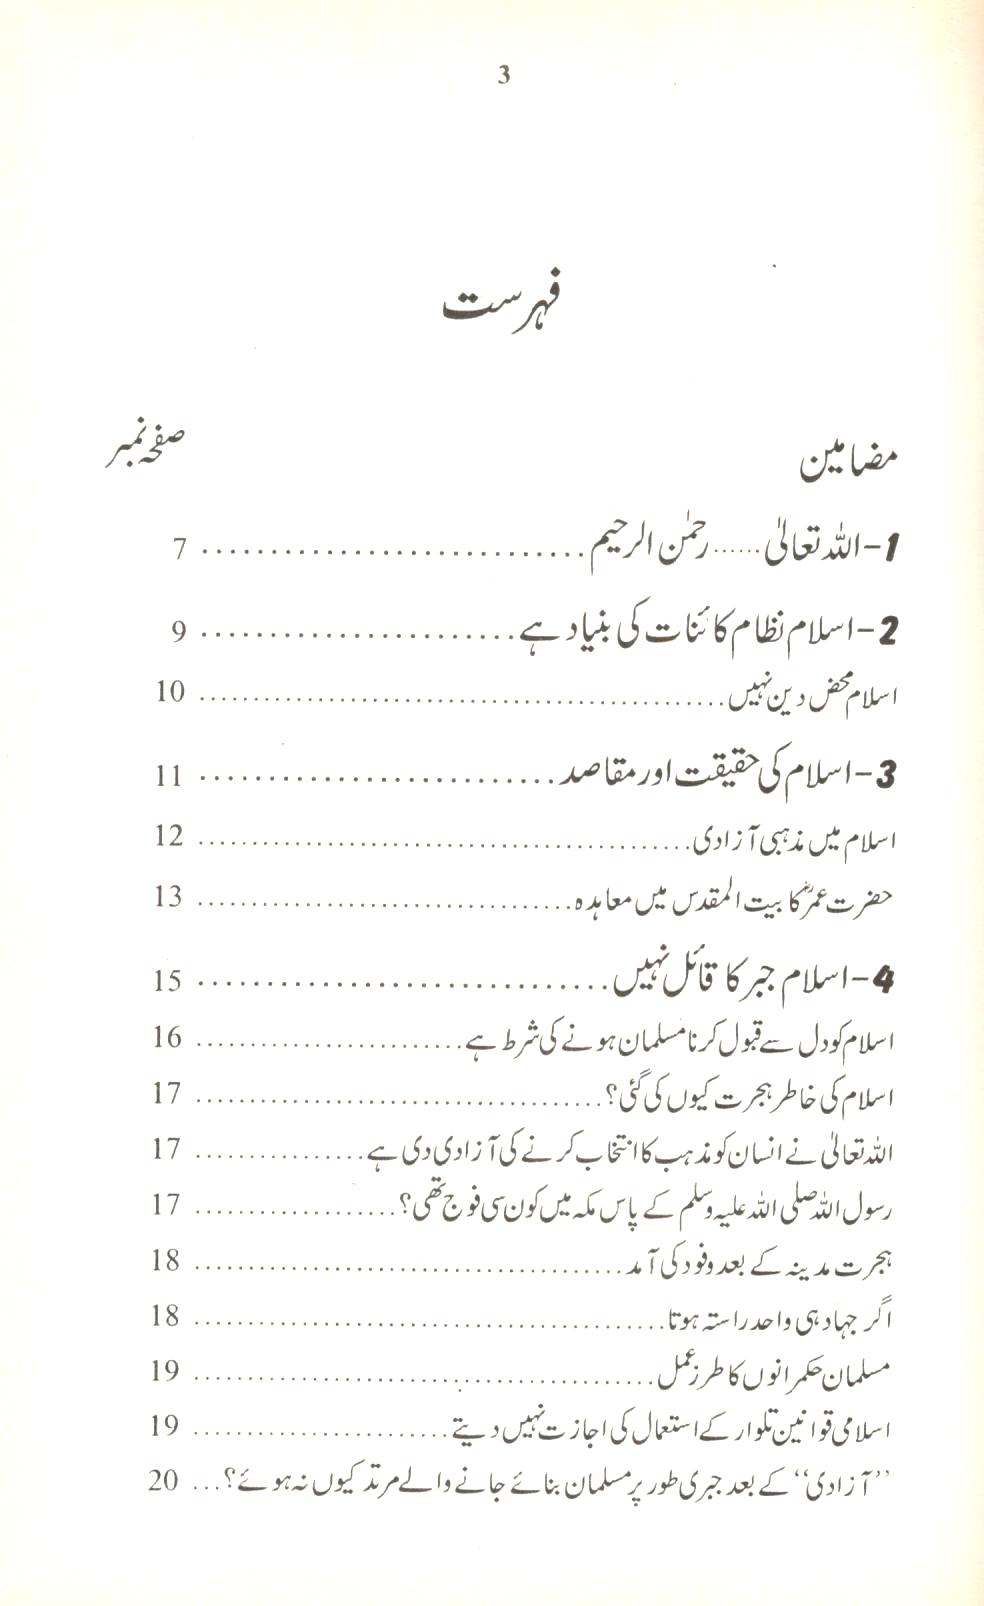 3
فہرست
مضامین صفحہ نمبر
1- اللہ تعالیٰ ...... رحمٰن الرحیم ............................ 7
2- اسلام نظام کائنات کی بنیاد ہے ....................... 9
اسلام محض دین نہیں ................................................ 10
3- اسلام کی حقیقت اور مقاصد .......................... 11
اسلام میں مذہبی آزادی ............................................. 12
حضرت عمرؓ کا بیت المقدس میں معاہدہ .................................. 13
4- اسلام جبر کا قائل نہیں .............................. 15
اسلام کو دل سے قبول کرنا مسلمان ہونے کی شرط ہے ........................ 16
اسلام کی خاطر ہجرت کیوں کی گئی؟ ..................................... 17
اللہ تعالیٰ نے انسان کو مذہب کا انتخاب کرنے کی آزادی دی ہے ............... 17
رسول اللہ صلی اللہ علیہ وسلم کے پاس مکہ میں کون سی فوج تھی؟ .................. 17
ہجرت مدینہ کے بعد وفود کی آمد ....................................... 18
اگر جہاد ہی واحد راستہ ہوتا ........................................... 18
مسلمان حکمرانوں کا طرز عمل .......................................... 19
اسلامی قوانین تلوار کے استعمال کی اجازت نہیں دیتے ....................... 19
”آزادی“ کے بعد جبری طور پر مسلمان بنائے جانے والے مرتد کیوں نہ ہوئے؟ ... 20